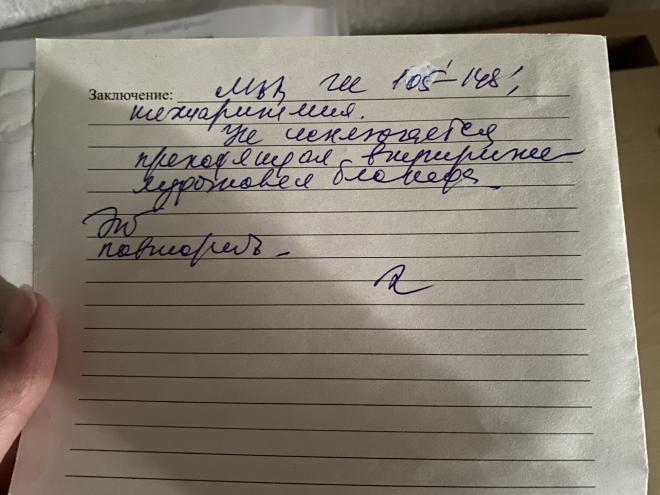 Заключение: МВД ЧСС 105'–148',
тахиаритмия.
Не исключается
преходящая внутрипред-
сердная блокада.
ЭКГ
повторить.